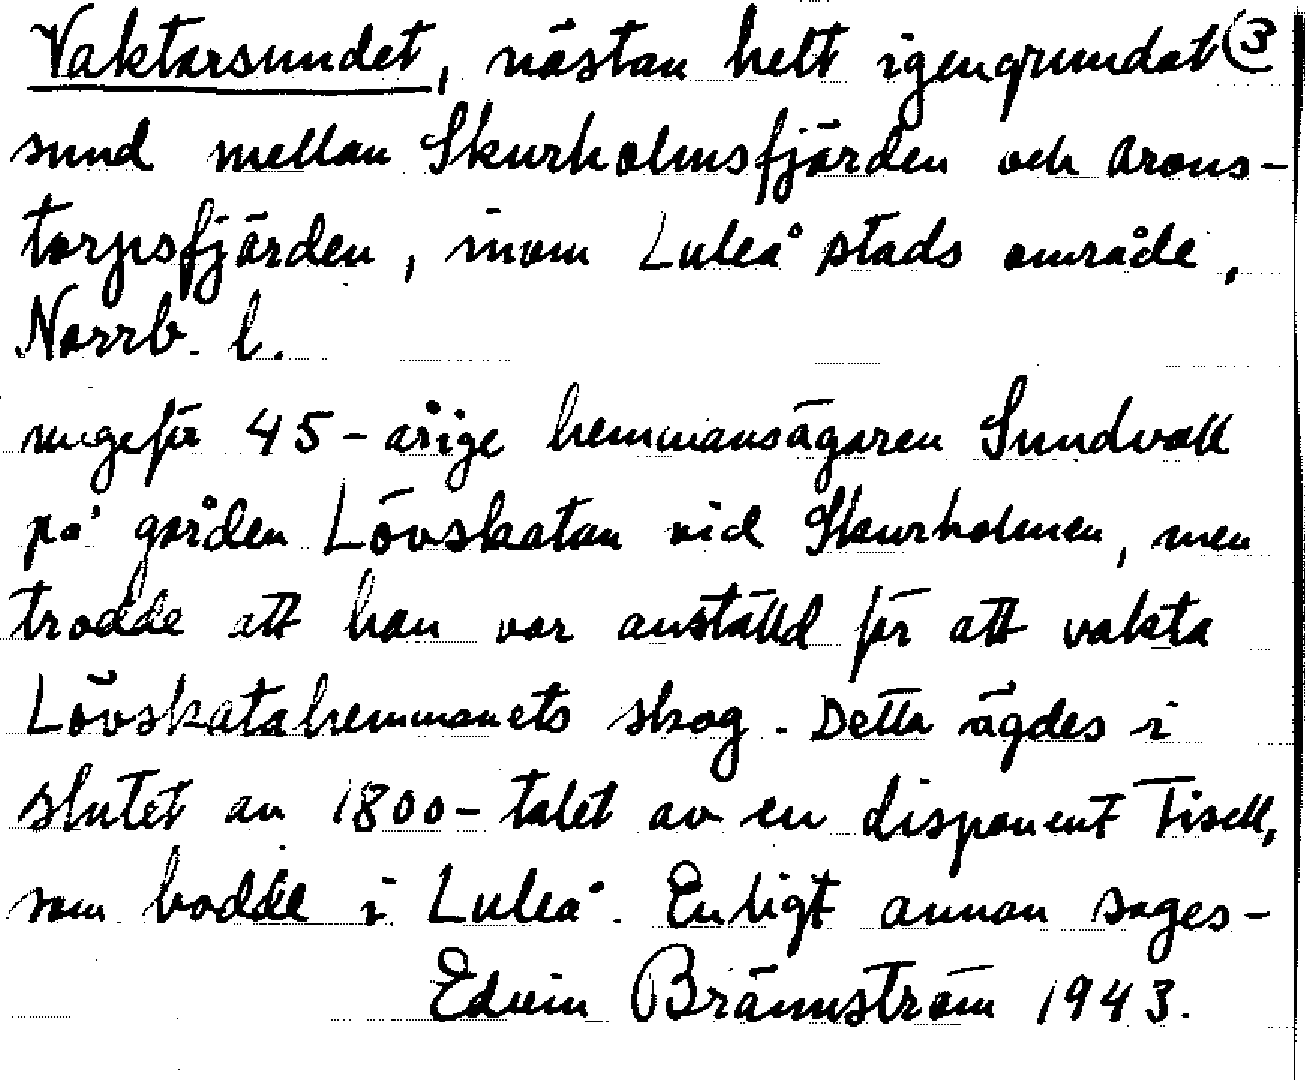 Vaktarsundet, nästan helt igengrundat (3
sund mellan Skurholmsfjärden och Arons-
torpsfjärden, inom Luleå stads område,
Norrb. l.
ungefär 45-årige hemmansägaren Sundvall
på gården Lövskatan vid Skurholmen, men
trodde att han var anställd för att vakta
Lövskatahemmanets skog. Detta ägdes i
slutet av 1800-talet av en disponent Tisell,
som bodde i Luleå. Enligt annan sages-
Edvin Brännström 1943.